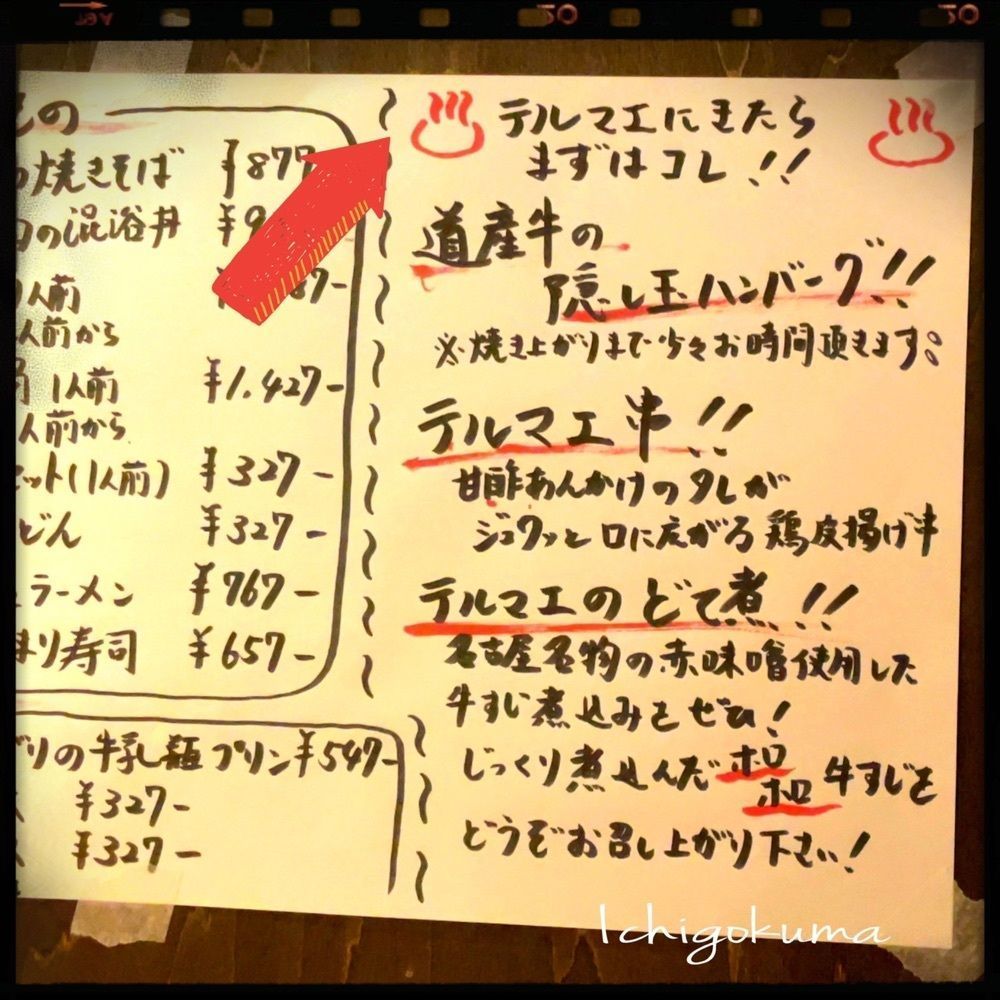 の
焼きそば ¥877
の混浴丼 ¥9
人前 87-
人前から
1人前 ¥1,427-
人前から
セット(1人前) ¥327-
どん ¥327-
ラーメン ¥767-
まり寿司 ¥657-
りの牛乳瓶プリン ¥547-
¥327-
¥327-
テルマエにきたら
まずはコレ!!
道産牛の
隠し玉ハンバーグ!!
※焼き上がりまで少々お時間頂きます。
テルマエ串!!
甘酢あんかけのタレが
ジュワッと口に広がる鶏皮揚げ串
テルマエのどて煮!!
名古屋名物の赤味噌使用した
牛すじ煮込みをぜひ!
じっくり煮込んだホロホロ牛すじを
どうぞお召し上がり下さい!
Ichigokuma